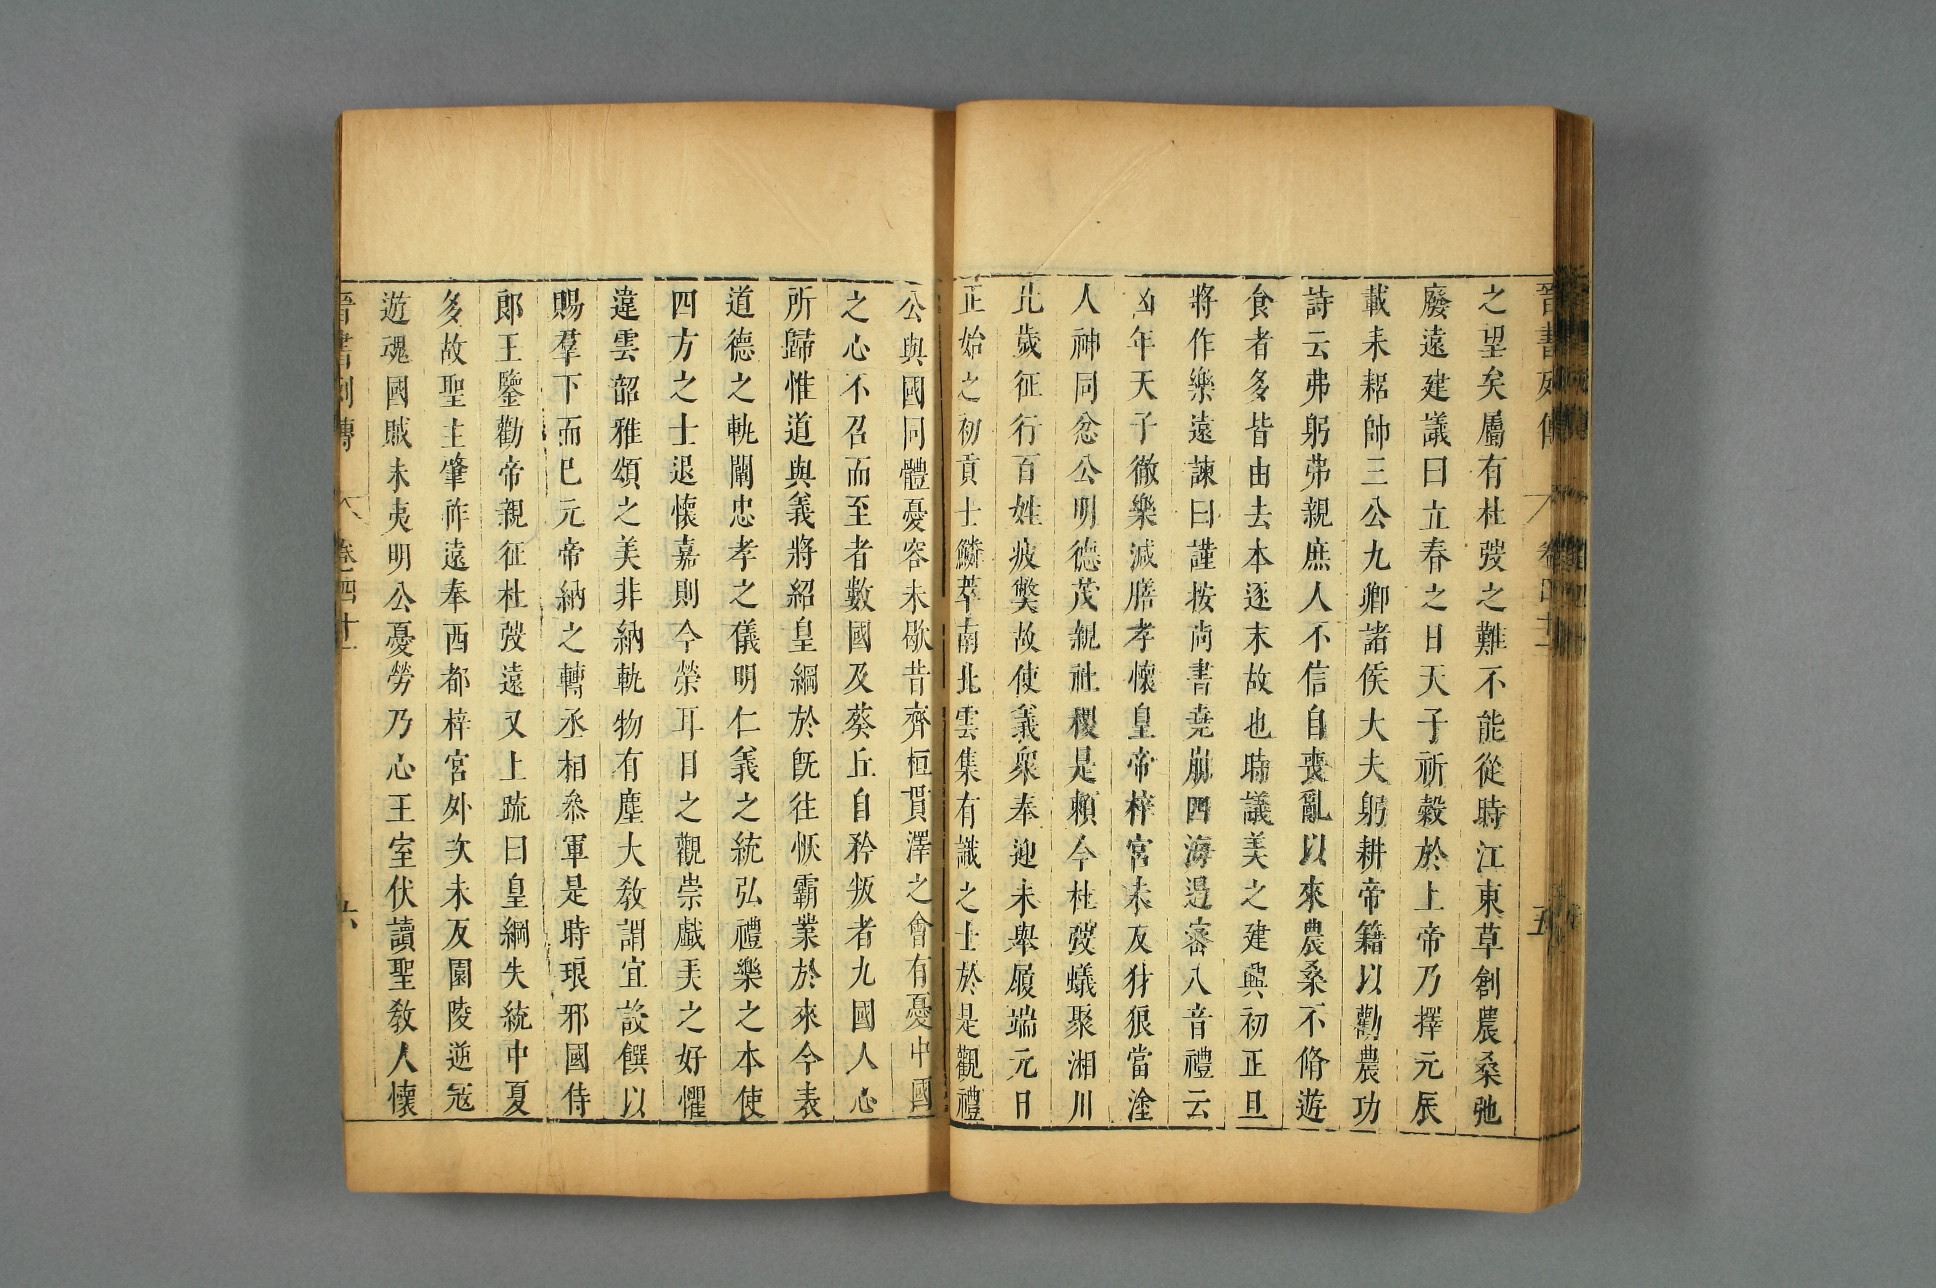 晉書列傳 卷四十一 五
之望矣屬有杜弢之難不能從時江東草創農桑弛
廢遠建議曰立春之日天子祈穀於上帝乃擇元辰
載耒耜帥三公九卿諸侯大夫躬耕帝籍以勸農功
詩云弗躬弗親庶人不信自喪亂以來農桑不脩遊
食者多皆由去本逐末故也時議美之建興初正旦
將作樂遠諫曰謹按尚書堯崩四海遏密八音禮云
凶年天子徹樂減膳孝懷皇帝梓宮未反豺狼當塗
人神同忿公明德茂親社稷是賴今杜弢蟻聚湘川
比歲征行百姓疲弊故使義衆奉迎未舉履端元日
正始之初貢士鱗萃南北雲集有識之士於是觀禮
公與國同體憂容未歇昔齊桓貫澤之會有憂中國
之心不召而至者數國及葵丘自矜叛者九國人心
所歸惟道與義將紹皇綱於旣往恢霸業於來今表
道德之軌闡忠孝之儀明仁義之統弘禮樂之本使
四方之士退懷嘉則今榮耳目之觀崇戲美之好懼
違雲韶雅頌之美非納軌物有塵大敎謂宜設饌以
賜羣下而已元帝納之轉丞相叅軍是時琅邪國侍
郎王鑒勸帝親征杜弢遠又上疏曰皇綱失統中夏
多故聖主肇祚遠奉西都梓宮外次未反園陵逆寇
遊魂國賊未夷明公憂勞乃心王室伏讀聖敎人懷
晉書列傳 卷四十一 六